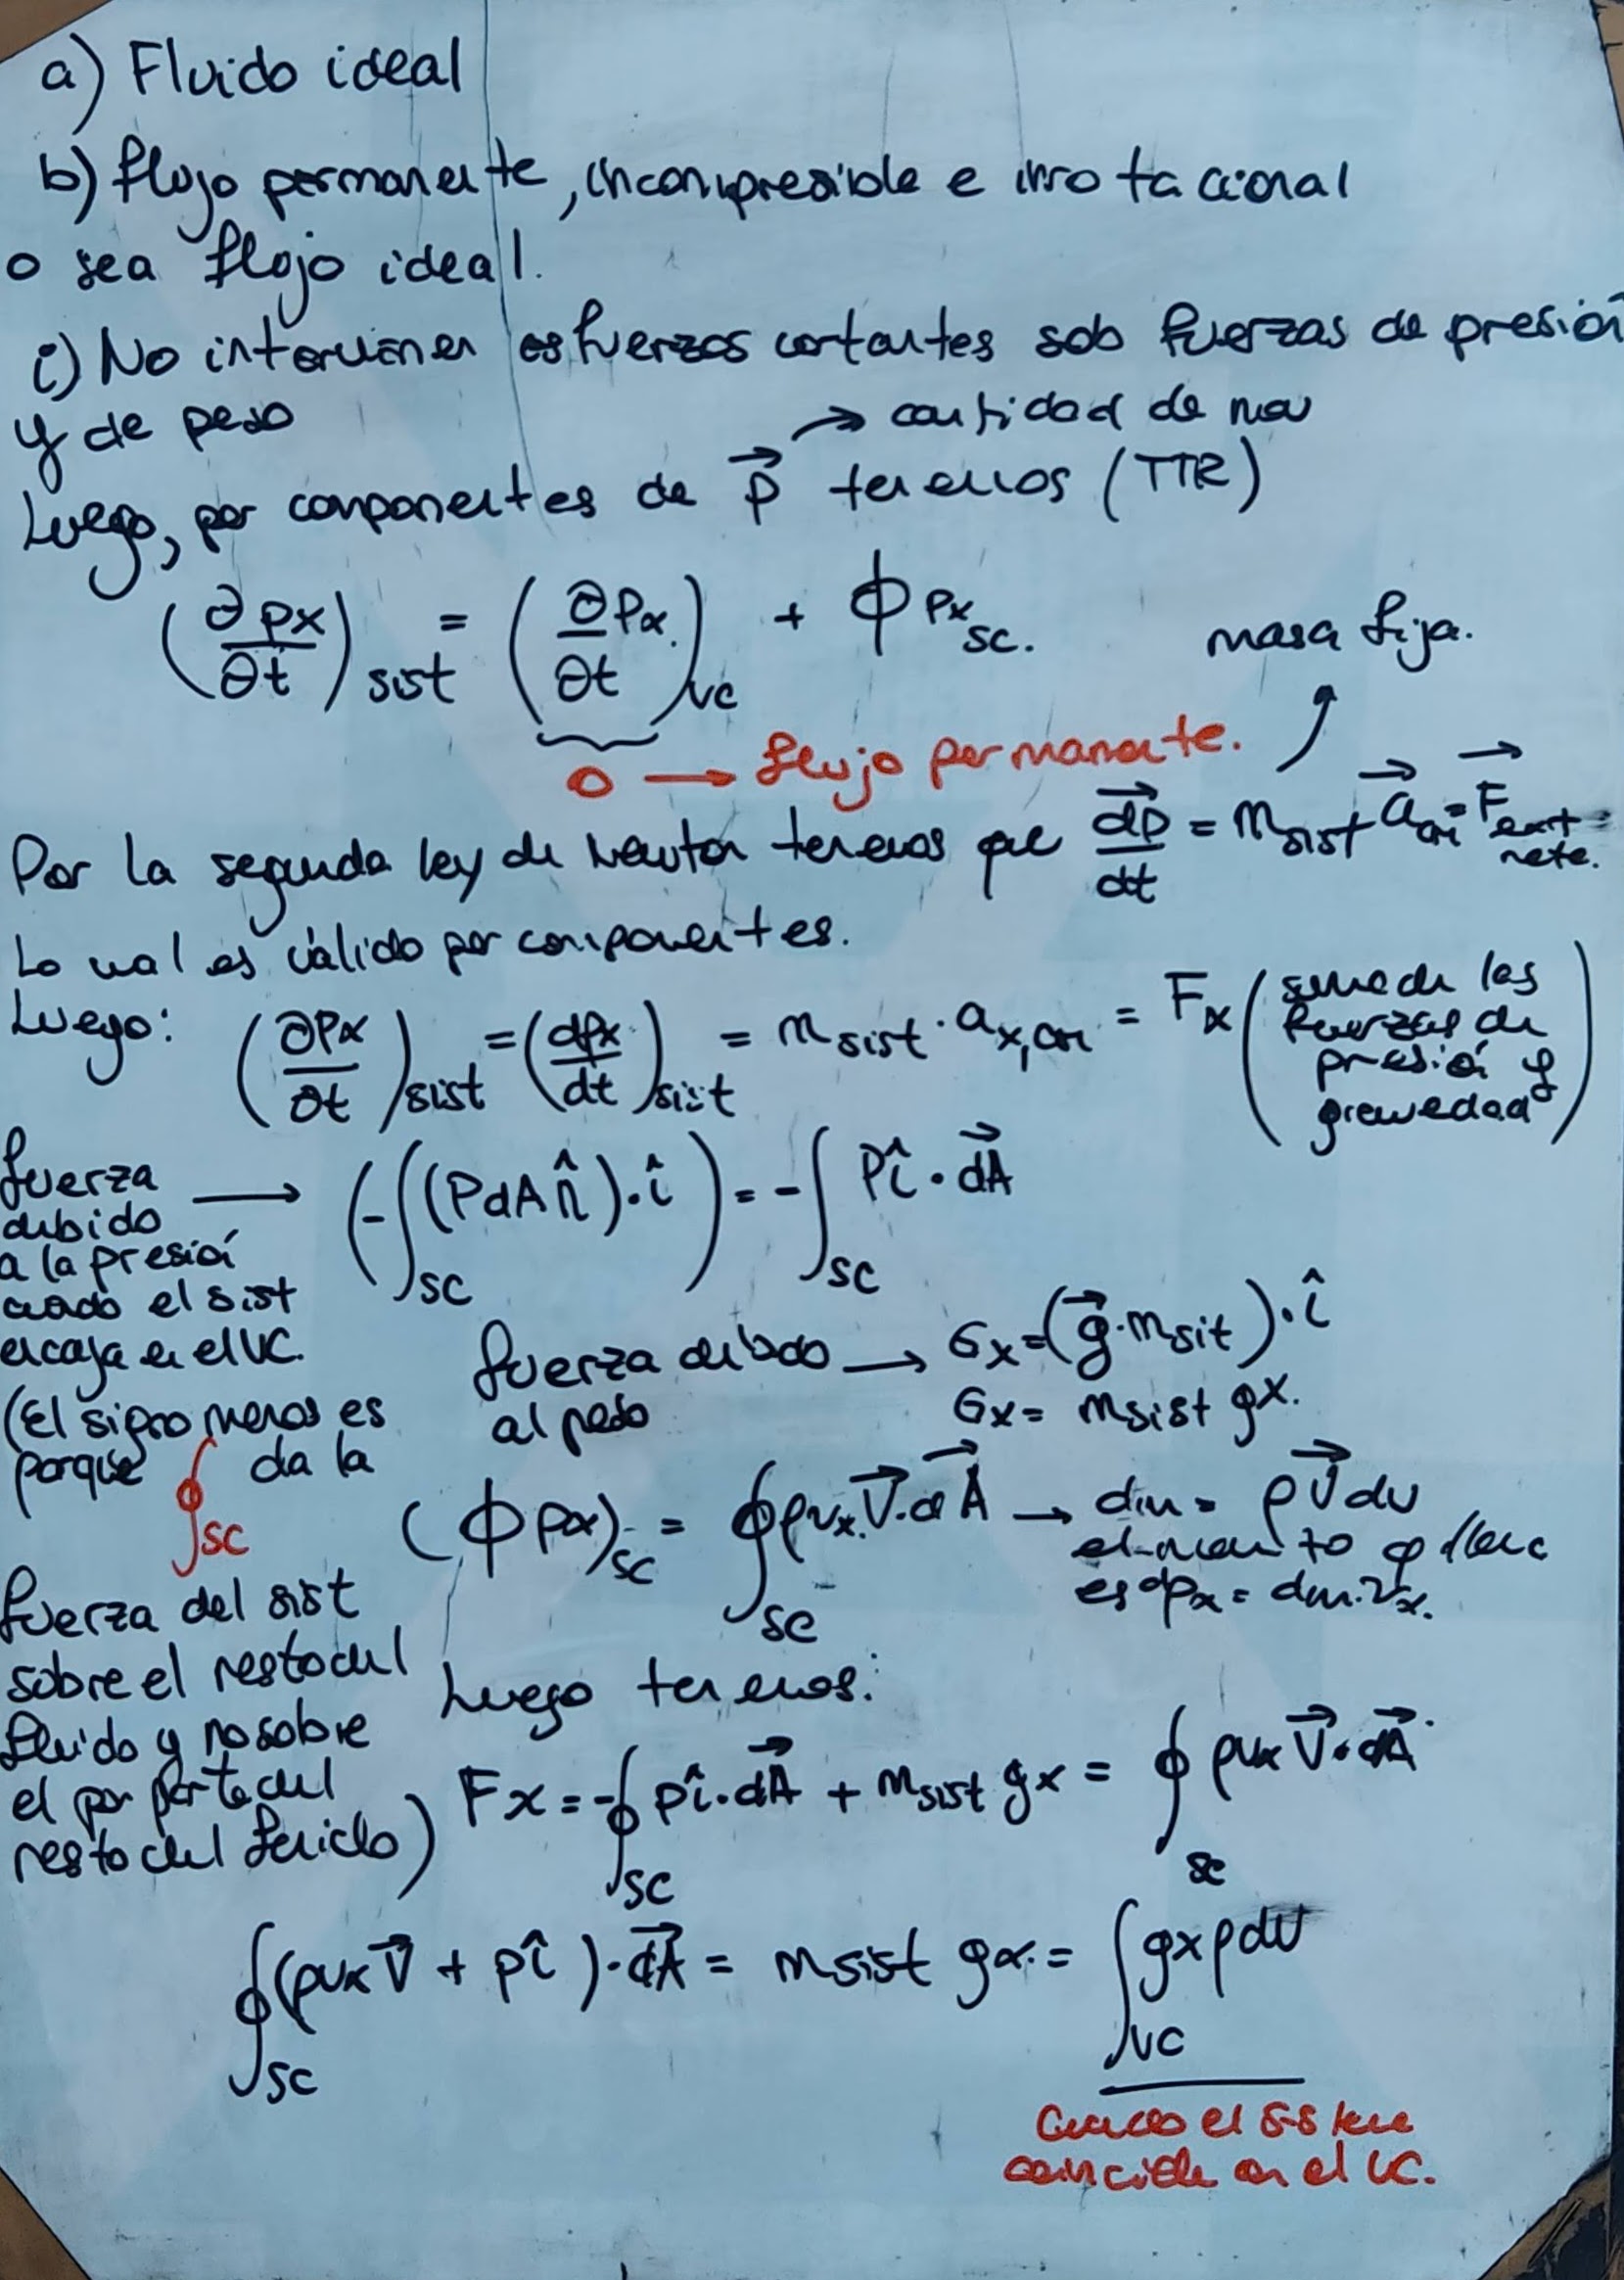 a) Fluido ideal
b) flujo permanente, incompresible e irrotacional
o sea flujo ideal.
i) No intervienen esfuerzos cortantes solo fuerzas de presión
y de peso
→ cantidad de mov
Luego, por componentes de p⃗ tenemos (TTR)
(∂px/∂t)sist = (∂Px/∂t)vc + ϕ Px sc.
masa fija.
0 → flujo permanente.
Por la segunda ley de Newton tenemos que d⃗p/dt = msist a⃗cm = F⃗ext neta.
Lo cual es válido por componentes.
Luego: (∂Px/∂t)sist = (dPx/dt)sist = msist · ax,cm = Fx (suma de las fuerzas de presión y gravedad)
fuerza debido a la presión cuando el sist encaja en el VC. → (-∫SC (PdA n̂)·î) = -∫SC Pî·d⃗A
(El signo menos es porque ∮SC da la fuerza del sist sobre el resto del fluido y no sobre el por parte del resto del fluido)
fuerza debido al peso → Gx = (g⃗·msit)·î
Gx = msist gx.
(ϕ px)sc = ∮SC ρvx.V⃗.d⃗A → dm = ρV⃗dv
el momento q lleva
es dpx = dm.vx.
Luego tenemos:
Fx = -∮SC pî.d⃗A + msist gx = ∮sc ρvx V⃗·d⃗A
∮SC (ρvx V⃗ + pî)·d⃗A = msist gx = ∫VC gxρdV
Cuando el sistema
coincide en el VC.